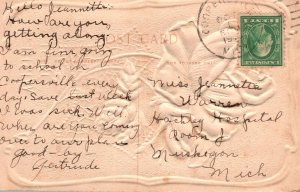 Hello Jeannette:
How are you
getting along
I am fine going
to school in
Coopersville every
day. Save last week
I was sick. Well
When are you coming
over to our place
good-by
Gertrude
POST CARD
Miss Jeannette
Warren
Hackley Hospital
Room J
Muskegon
Mich